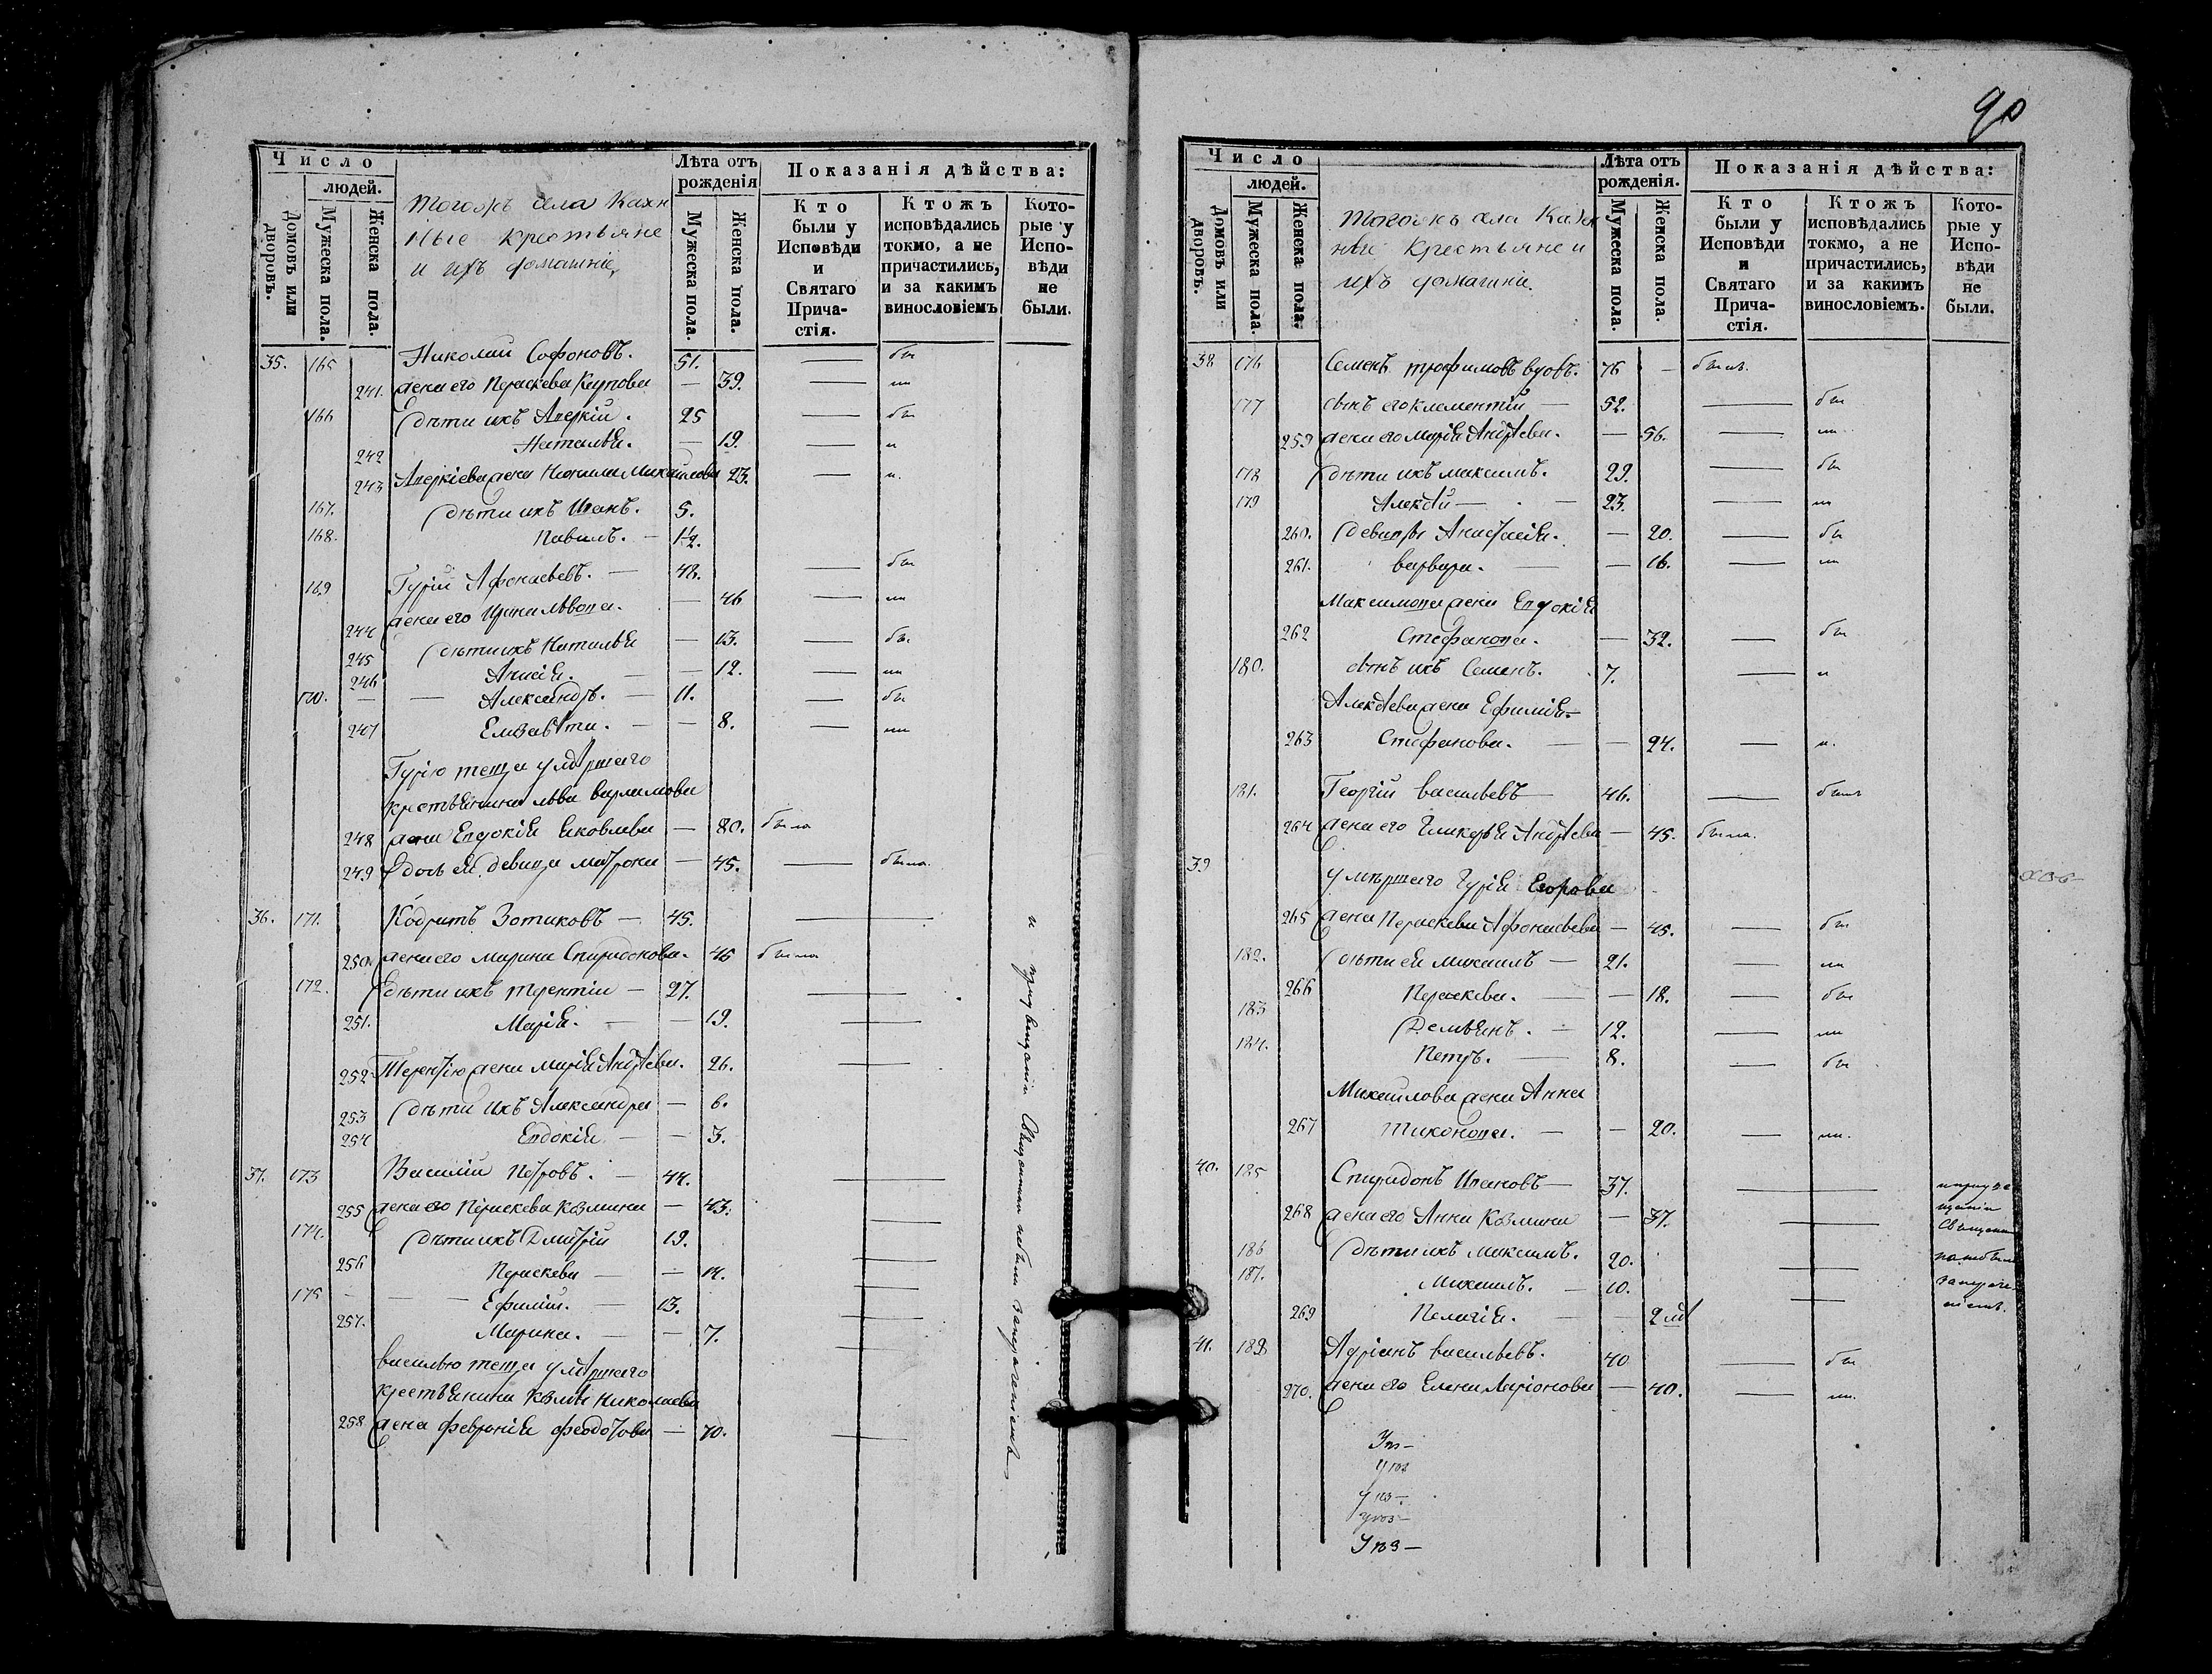 90
Число
людей.
Домовъ или дворовъ.
Мужеска пола.
Женска пола.
Тогожъ села Казен
ные крестьяне
и ихъ домашніе,
Лѣта отъ рожденія
Мужеска пола.
Женска пола.
Показанія дѣйства:
Кто были у Исповѣди и Святаго Прича- стія.
Ктожъ исповѣдались токмо, а не причастились, и за какимъ винословіемъ
Кото- рые у Испо- вѣди не были.
35. 165 Николай Софоновъ. 51. — бы
241. жена его Параскева Карпова — 39. —
166 дѣти ихъ Аверкій. 25 — бы
242 Наталья. — 19. — и
243 Аверкіева жена Неонила Михайлова 23. — и.
167. дѣти ихъ Иванъ. 5.
168. Павилъ. — 1½.
169 Гурій Афонасьевъ. — 48. — бы
244 жена его Ирина Львова. — 46 —
245 дѣти ихъ Наталья — 13. — бы
246 Анисія. — — 12. —
170. — — Александръ. — 11. — бы
247 Елизавѣта. — — 8. —
Гурію теща умѣршаго
крестьянина Льва Варламова
248 жена Евдокія Яковлева — 80. была
249 дочь ея девица Матрона — 45. — была.
36. 171. Кодратъ Зотиковъ — 45. —
250. жена его Марина Спиридонова. 46 была
172. дѣти ихъ Терентій — 27. —
251. Марія. — — 19. —
252 Терентію жена Марія Андрѣева. 26. —
253 дѣти ихъ Александра — 6.
254 Евдокія — — 3.
37. 173 Василій Петровъ. — 44. —
255 жена его Параскева Козмина — 43. —
174. дѣти ихъ Дмитрій 19. —
256 Параскева — — 14. —
175 — — — Ефимій. — 13. —
257. Марина. — — 7. —
Василью теща умѣршаго
крестьянина Козмы Николаева
258 жена Февронія Феодотова — 70. —
Число
людей.
Домовъ или дворовъ.
Мужеска пола.
Женска пола.
Тогожъ села Казен
ные крестьяне и
ихъ домашніе.
Лѣта отъ рожденія.
Мужеска пола.
Женска пола.
Показанія дѣйства:
Кто были у Исповѣди и Святаго Прича- стія.
Ктожъ исповѣдались токмо, а не причастились, и за какимъ винословіемъ.
Кото- рые у Испо- вѣди не были.
38 176 Семенъ Трофимовъ вдовъ. 76 — былъ.
177 сынъ его Клементій — 52. — бы
259 жена его Марія Андрѣева. — 56. —
178 дѣти ихъ Максимъ. 29. — бы
179 Алексѣй — 23. —
260. девицы Анастасія. — 20. — бы
261. Варвара. — — 16. —
Максимова жена Евдокія
262 Стефанова. — 32. — бы
180. сынъ ихъ Семенъ. 7. — и
Алексѣева жена Ефимія —
263 Стефанова. — — 24. — и.
181. Георгій Васильевъ — 46. — былъ
264 жена его Гликерія Андрѣева — 45. была.
39 умѣршаго Гурія Егорова
265 жена Параскева Афонасьева — 45. — бы
182. дѣти ея Михаилъ — 21. —
266 Параскева. — — 18. — бы
183 Демьянъ. — 12. —
184. Петръ. — 8. — бы
Михайлова жена Анна
267 Тихонова. — — 20. —
40. 185 Спиридонъ Ивановъ — 37. —
268 жена его Анна Козмина — 37. —
186 дѣти ихъ Максимъ. 20. —
187. Михаилъ. — 10. —
269 Пелагія. — 2
41. 188 Адріанъ Васильевъ. 40 — бы
270. жена его Елена Ларіонова — 40. —